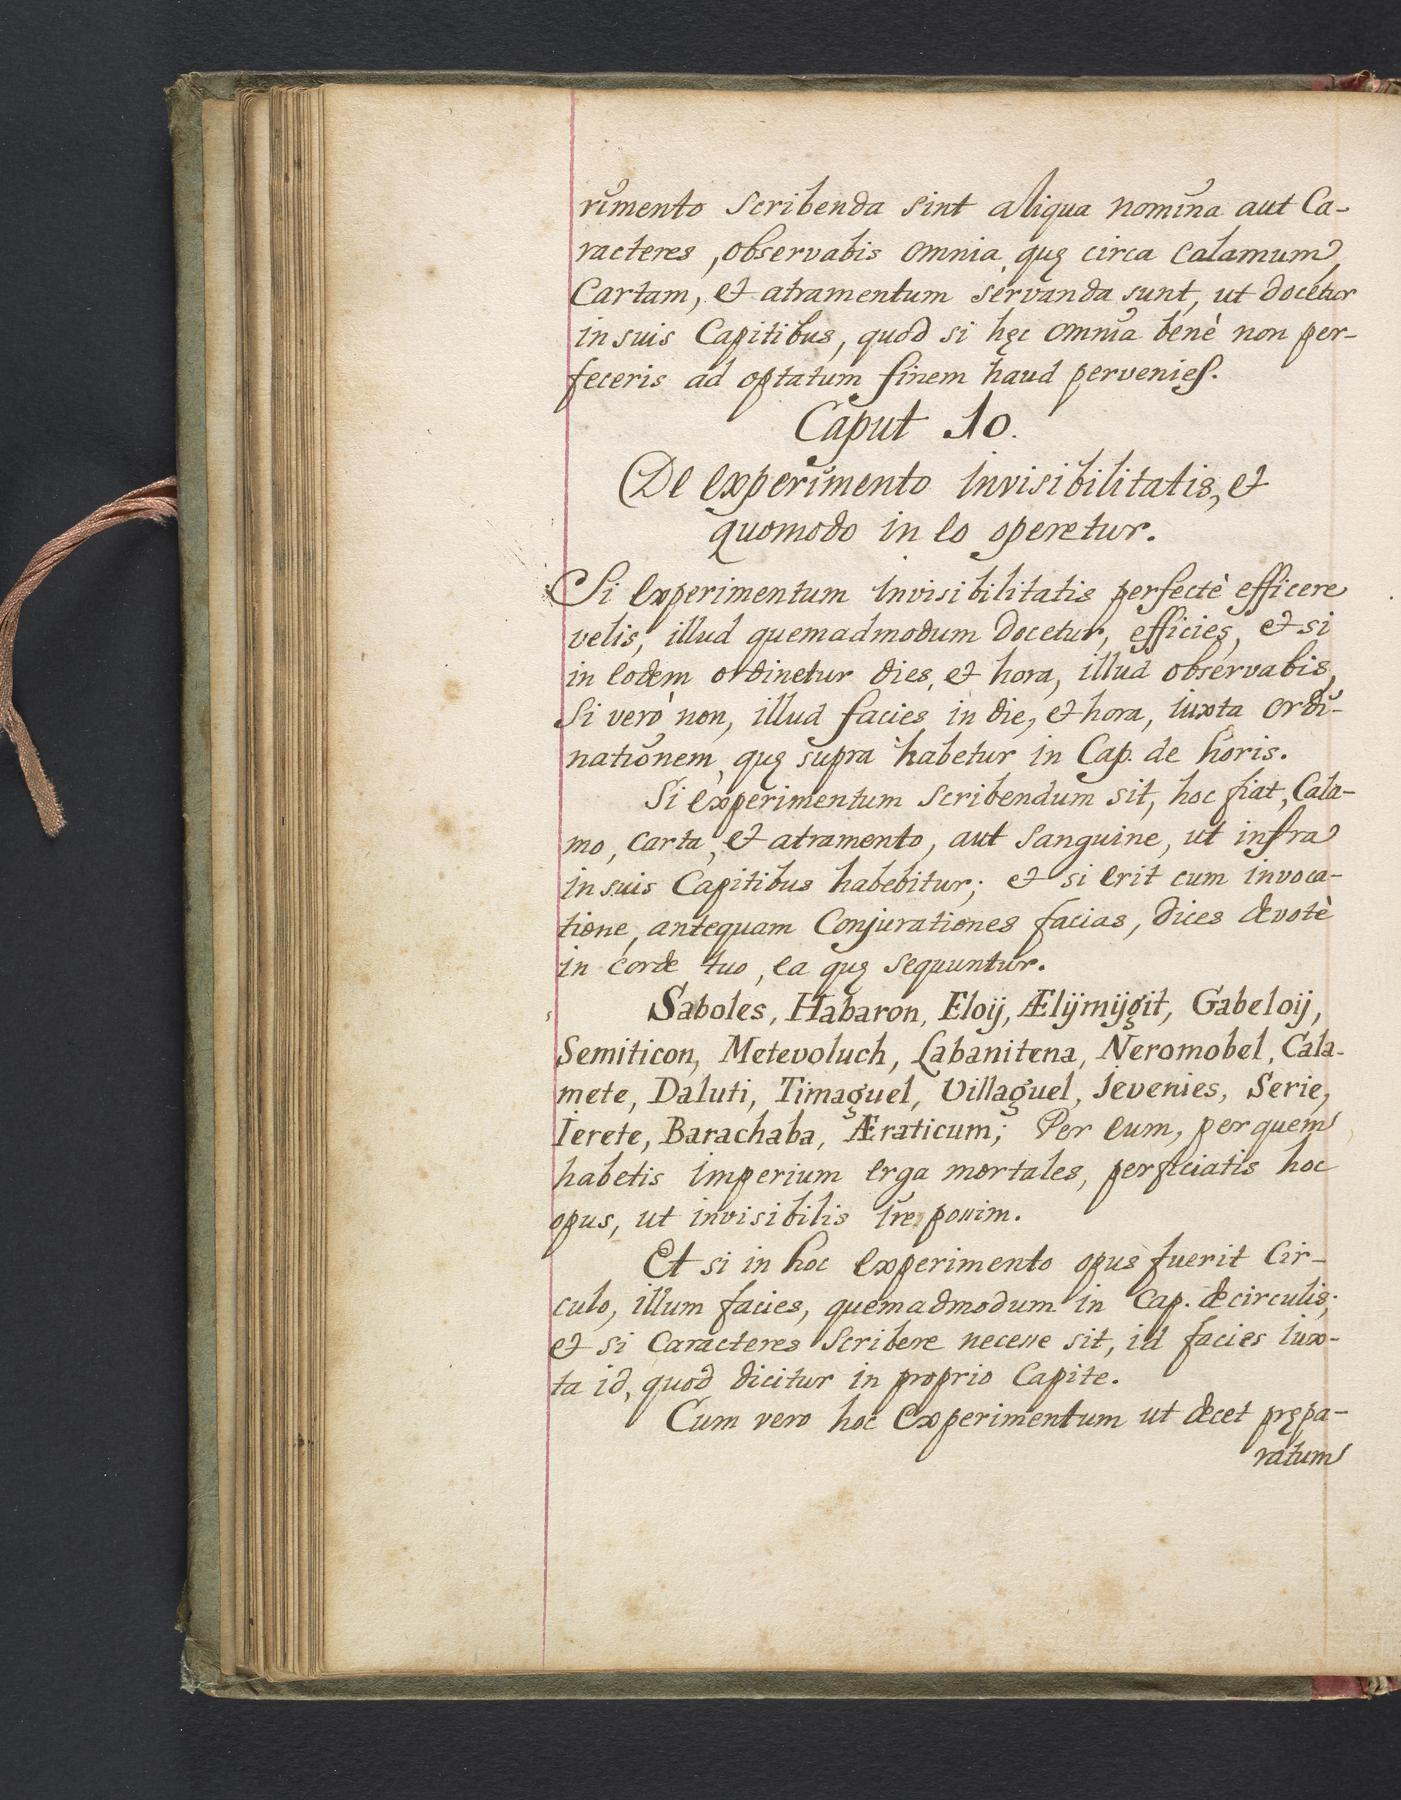 rimento scribenda sint aliqua nomina aut Ca-
racteres, observabis omnia quę circa Calamum,
Cartam, et atramentum servanda sunt, ut docetur
in suis Capitibus, quod si hęc omnia benè non per-
feceris ad optatum finem haud pervenies.
Caput 10.
De experimento invisibilitatis, et
quomodo in eo operetur.
Si experimentum invisibilitatis perfectè efficere
velis, illud quemadmodum docetur, efficies, et si
in eodem ordinetur dies, et hora, illud observabis,
Si verò non, illud facies in die, et hora, iuxta ordi-
nationem, quę supra habetur in Cap. de horis.
Si experimentum scribendum sit, hoc fiat, Cala-
mo, carta, et atramento, aut sanguine, ut infra
in suis Capitibus habebitur; et si erit cum invoca-
tione, antequam Conjurationes facias, dices devotè
in corde tuo, ea quę sequuntur.
Saboles, Habaron, Eloij, Ælijmijgit, Gabeloij,
Semiticon, Metevoluch, Labanitena, Neromobel, Cala-
mete, Daluti, Timaguel, Villaguel, Jevenies, Serie,
Jerete, Barachaba, Æraticum; Per eum, per quem
habetis imperium erga mortales, perficiatis hoc
opus, ut invisibilis ire possim.
Et si in hoc experimento opus fuerit Cir-
culo, illum facies, quemadmodum in Cap. de circulis;
et si Caracteres scribere necesse sit, id facies iux-
ta id, quod dicitur in proprio Capite.
Cum vero hoc experimentum ut decet prępa-
ratum